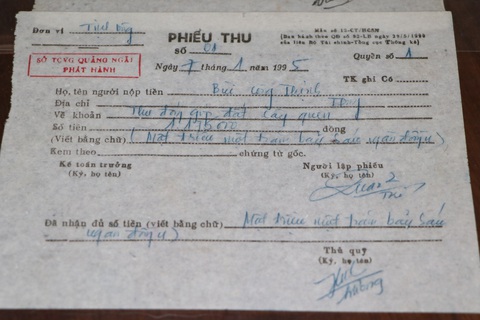 Mẫu số 12-KT/HCSN
Đơn vị
PHIẾU THU
(Ban hành theo QĐ số
của liên Bộ Tài chính-Tổng cục Thống kê)
SỐ 01
Quyển số 1
SỞ TCVG QUẢNG NGÃI
PHÁT HÀNH
Ngày 7 tháng 1 năm 1995
TK ghi Có
Họ, tên người nộp tiền Bùi Công Thịnh
Địa chỉ
Về khoản Thu đóng góp đất
Số tiền đồng
(Viết bằng chữ) (Một triệu một trăm bảy sáu ngàn đồng)
Kèm theo chứng từ gốc.
Kế toán trưởng
(Ký, họ tên)
Người lập phiếu
(Ký, họ tên)
Đã nhận đủ số tiền (viết bằng chữ) Một triệu một trăm bảy sáu
ngàn đồng)
Thủ quỹ
(Ký, họ tên)